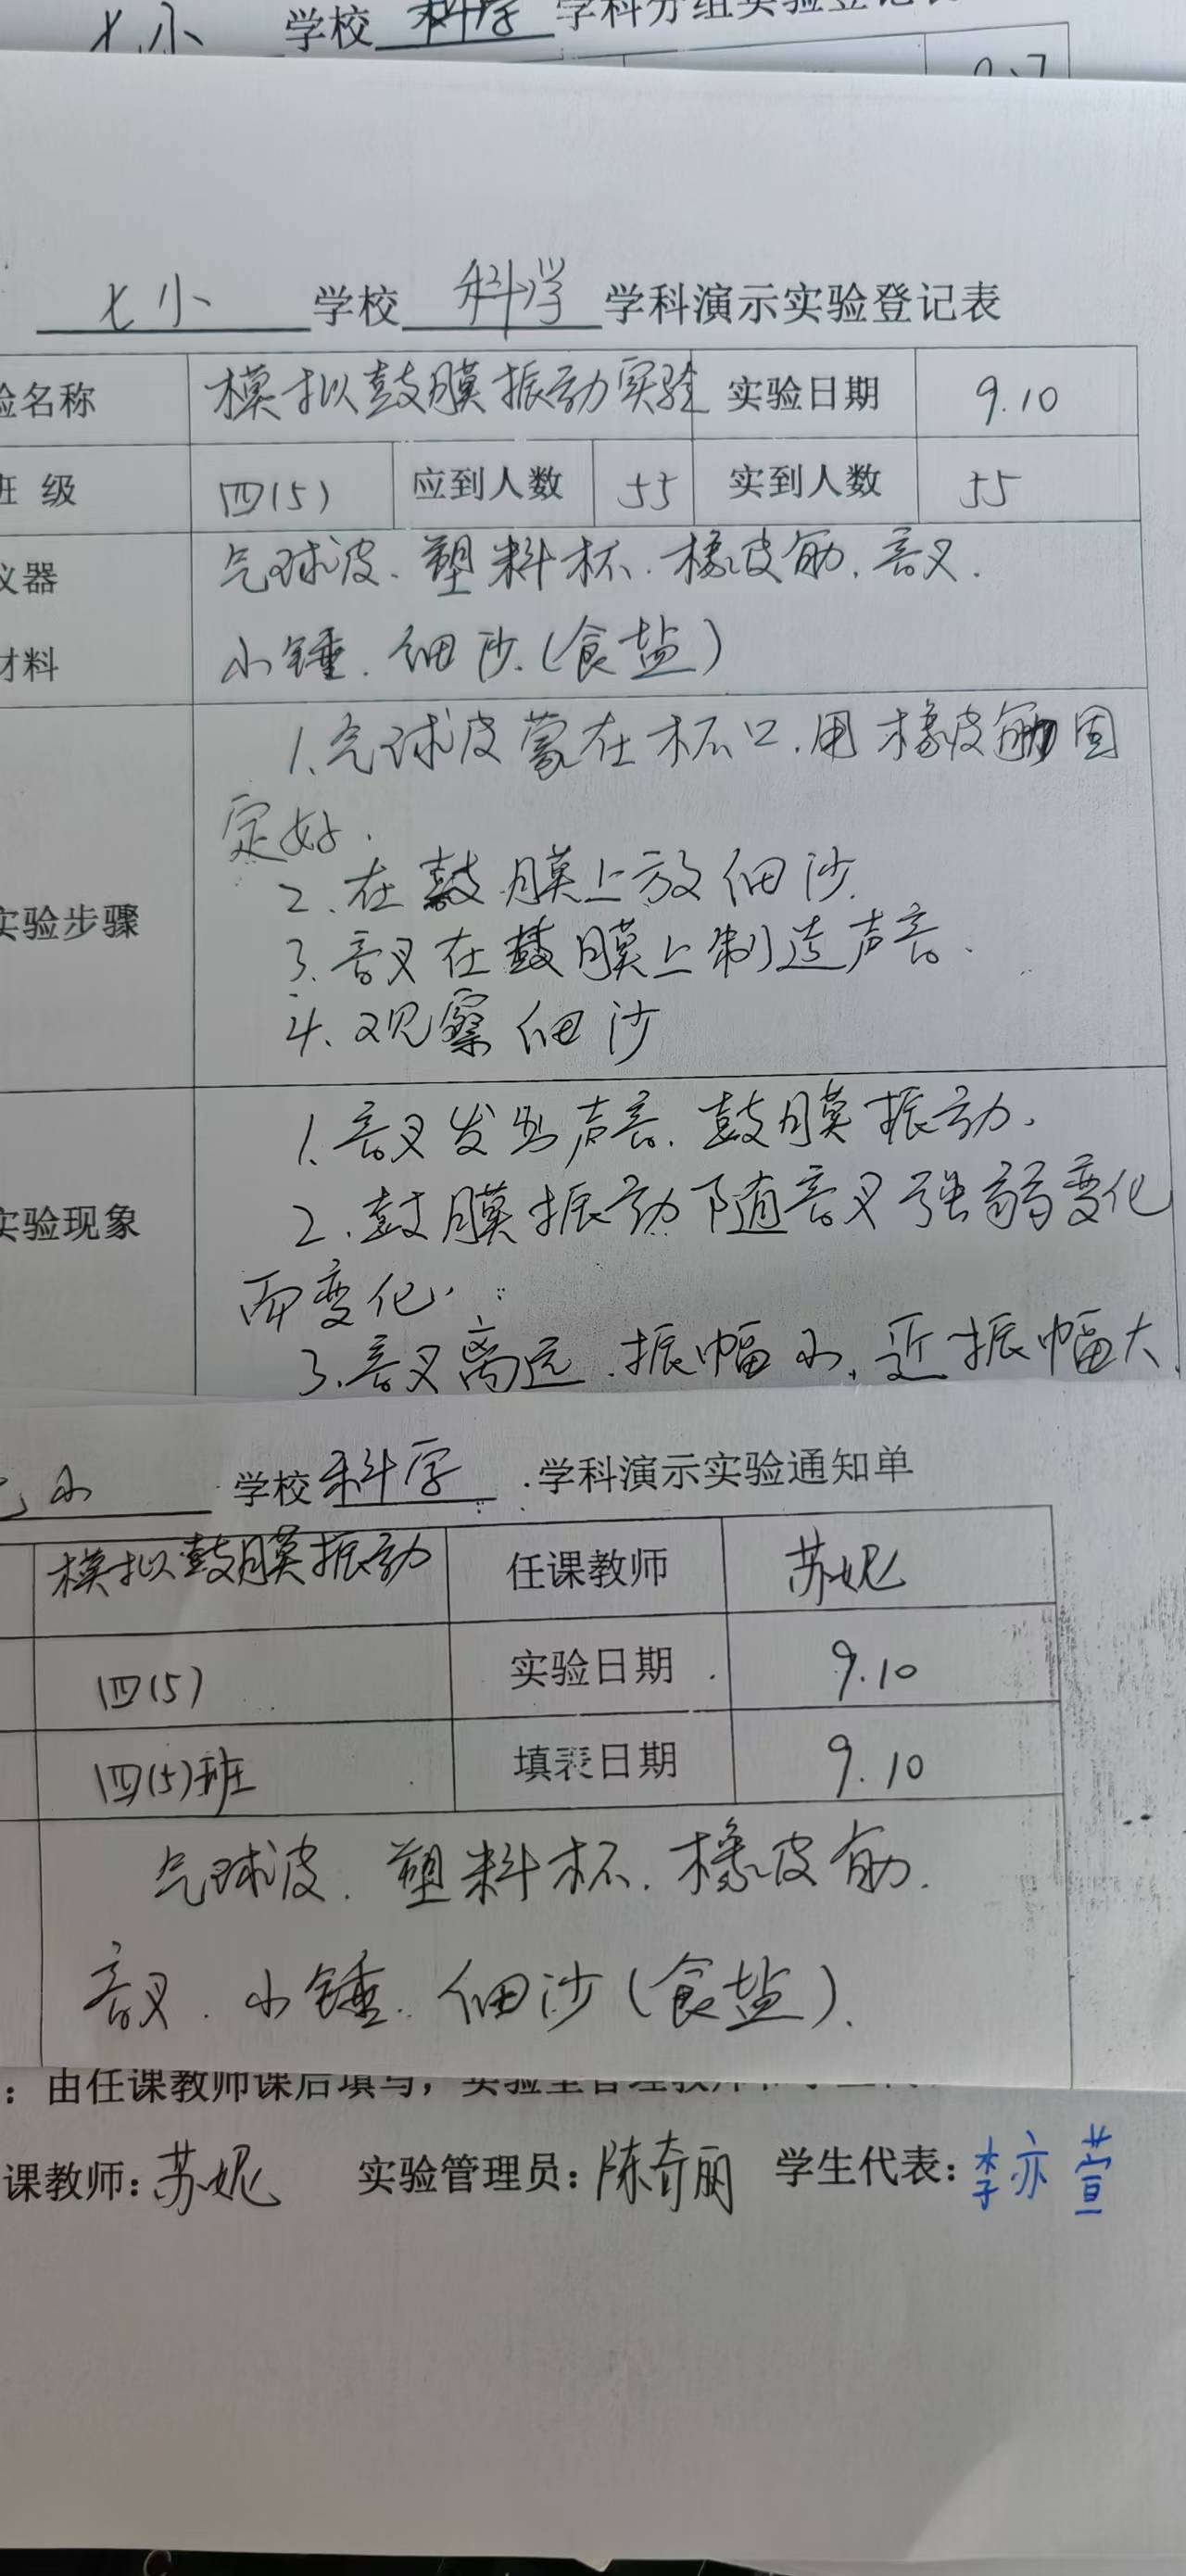 七小 学校 科学 学科分组实验登记表
七小 学校 科学 学科演示实验登记表
验名称 模拟鼓膜振动实验 实验日期 9.10
班 级 四(5) 应到人数 55 实到人数 55
仪器 气球皮、塑料杯、橡皮筋、音叉、
材料 小锤、细沙(食盐)
1、气球皮蒙在杯口,用橡皮筋固
定好.
2、在鼓膜上放细沙.
实验步骤
3、音叉在鼓膜上制造声音.
4、观察细沙
1、音叉发出声音,鼓膜振动.
实验现象 2、鼓膜振动随音叉强弱变化
而变化.
3、音叉离远,振幅小,近振幅大.
七小 学校 科学 学科演示实验通知单
模拟鼓膜振动 任课教师 苏妮
四(5) 实验日期 9.10
四(5)班 填表日期 9.10
气球皮、塑料杯、橡皮筋.
音叉、小锤、细沙(食盐).
:由任课教师课后填写,实验室管理教师
课教师:苏妮 实验管理员:陈奇丽 学生代表:李亦萱